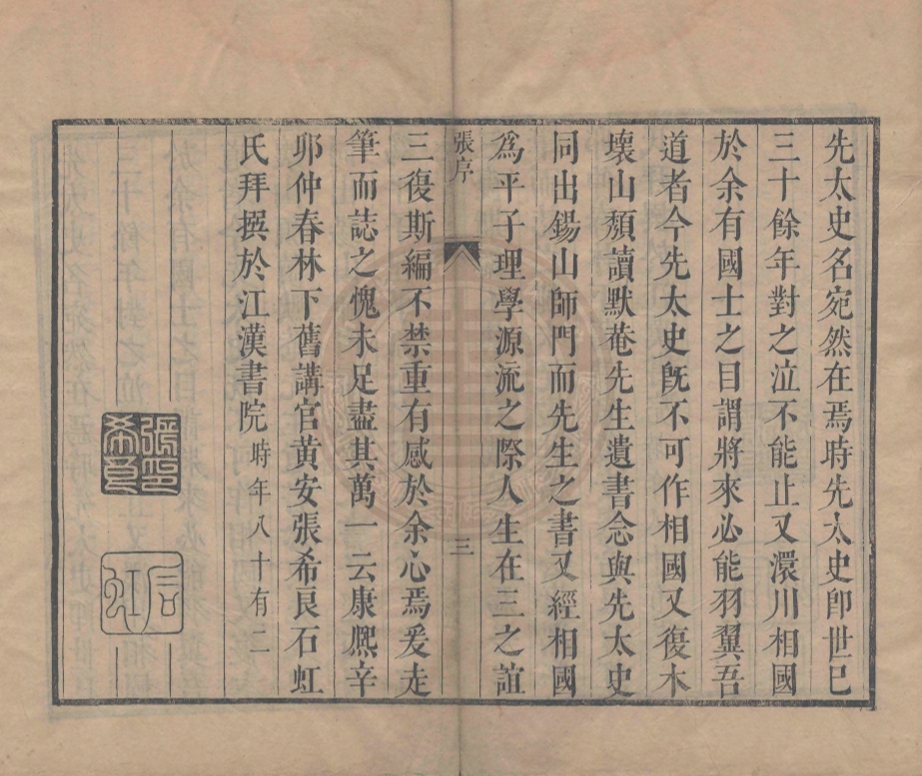 先太史名宛然在焉時先太史卽世已
三十餘年對之泣不能止又澴川相國
於余有國士之目謂將來必能羽翼吾
道者今先太史旣不可作相國又復木
壞山頹讀默菴先生遺書念與先太史
同出鍚山師門而先生之書又經相國
爲平子理學源流之際人生在三之誼
張序
三
三復斯編不禁重有感於余心焉爰走
筆而誌之愧未足盡其萬一云康熈辛
卯仲春林下舊講官黄安張希良石虹
氏拜撰於江漢書院時年八十有二
張印希良
石虹